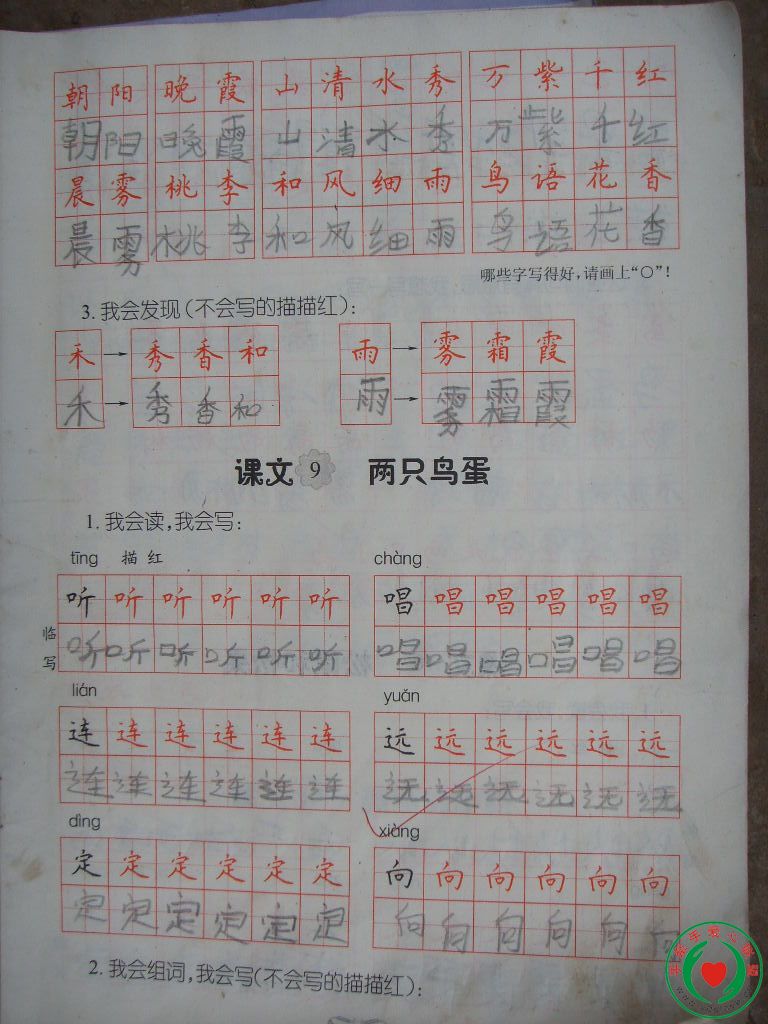 朝阳 晚霞 山清水秀 万紫千红
朝阳 晚霞 山清水秀 万紫千红
晨雾 桃李 和风细雨 鸟语花香
晨雾 桃李 和风细雨 鸟语花香
哪些字写得好，请画上“○”！
3. 我会发现（不会写的描描红）：
禾→秀香和 雨→雾霜霞
禾→秀香和 雨→雾霜霞
课文 9 两只鸟蛋
1. 我会读，我会写：
tīng 描红 chàng
听听听听听听 唱唱唱唱唱唱
临写 听听听听听听 唱唱唱唱唱唱
lián yuǎn
连连连连连连 远远远远远远
连连连连连连 远远远远远远
dìng xiàng
定定定定定定 向向向向向向
定定定定定定 向向向向向向
2. 我会组词，我会写（不会写的描描红）：